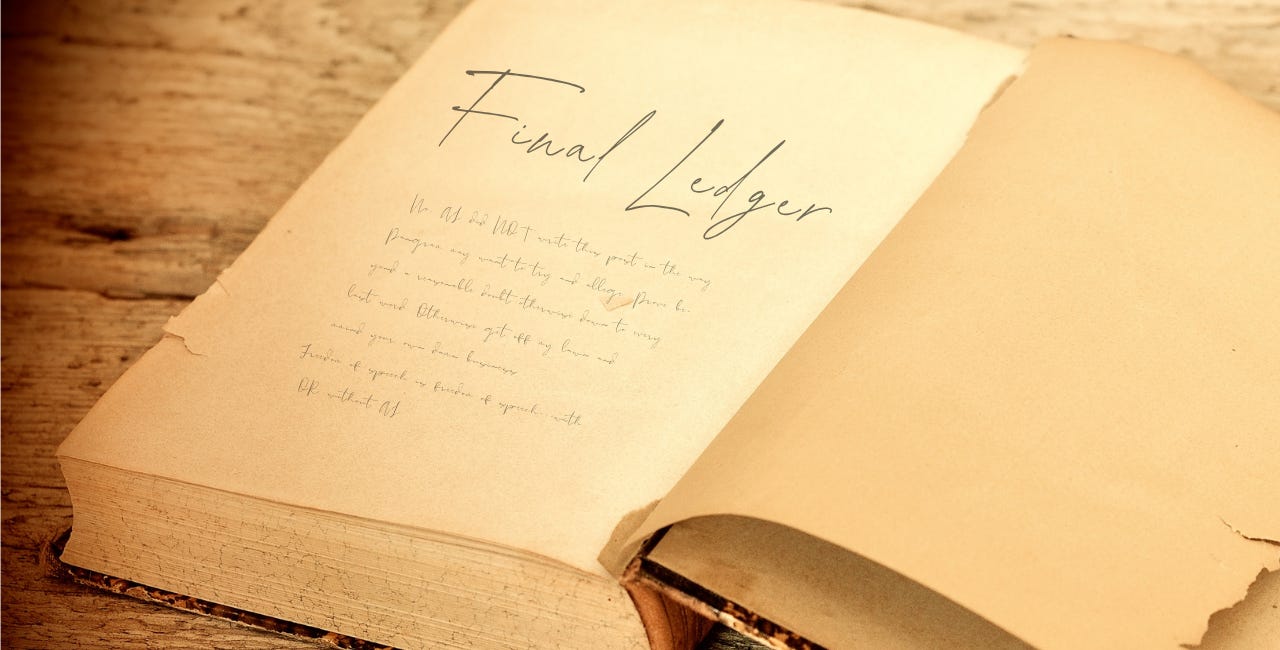 Final Ledger
No. AI did NOT write this post in the way
Pangram may want to try and allege. Prove be-
yond a reasonable doubt otherwise down to every
last word. Otherwise get off my lawn and
mind your own damn business
Freedom of speech is freedom of speech. with
OR without AI